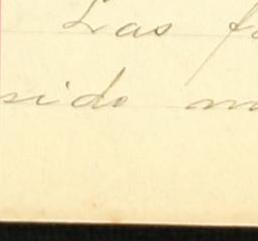 Las f
sido m